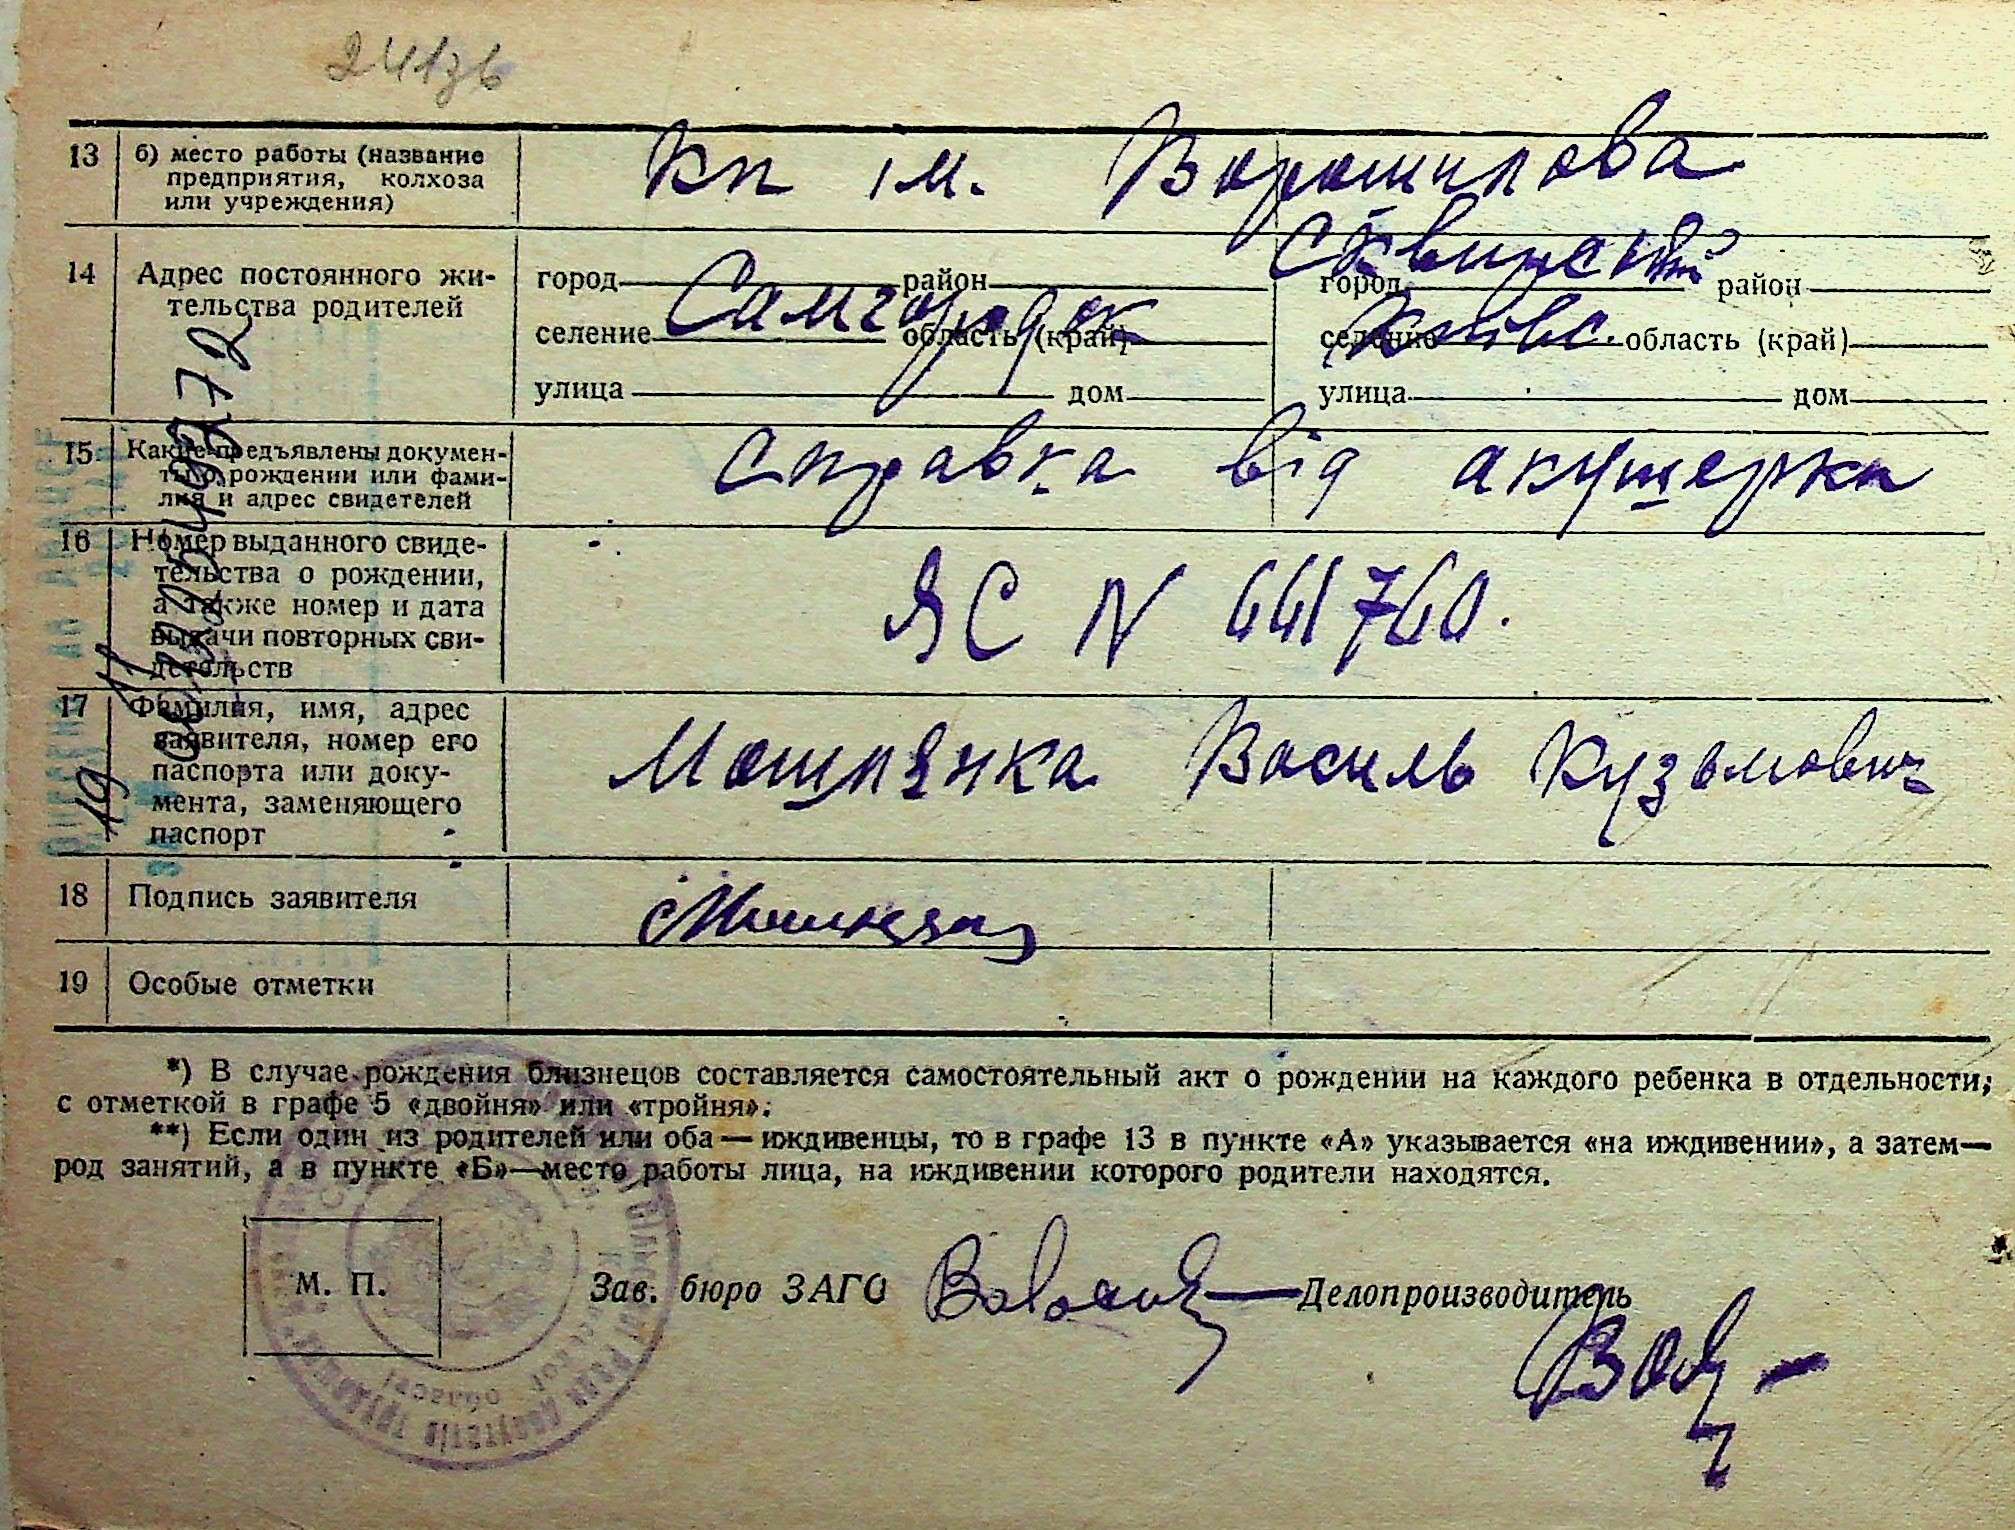 13 б) место работы (название предприятия, колхоза или учреждения) Кп ім. Ворошилова
14 Адрес постоянного жительства родителей
город район город Сквирский район
селение Самгородок область (край) селение Київс. область (край)
улица дом улица дом
15 Какие предъявлены документы о рождении или фамилия и адрес свидетелей справка від акушерки
16 Номер выданного свидетельства о рождении, а также номер и дата выдачи повторных свидетельств ЯС N 441760.
17 Фамилия, имя, адрес заявителя, номер его паспорта или документа, заменяющего паспорт Мошлянка Василь Кузьмович
18 Подпись заявителя
19 Особые отметки
*) В случае рождения близнецов составляется самостоятельный акт о рождении на каждого ребенка в отдельности,
с отметкой в графе 5 «двойня» или «тройня».
**) Если один из родителей или оба — иждивенцы, то в графе 13 в пункте «А» указывается «на иждивении», а затем—
род занятий, а в пункте «Б»—место работы лица, на иждивении которого родители находятся.
М. П. Зав. бюро ЗАГС Делопроизводитель